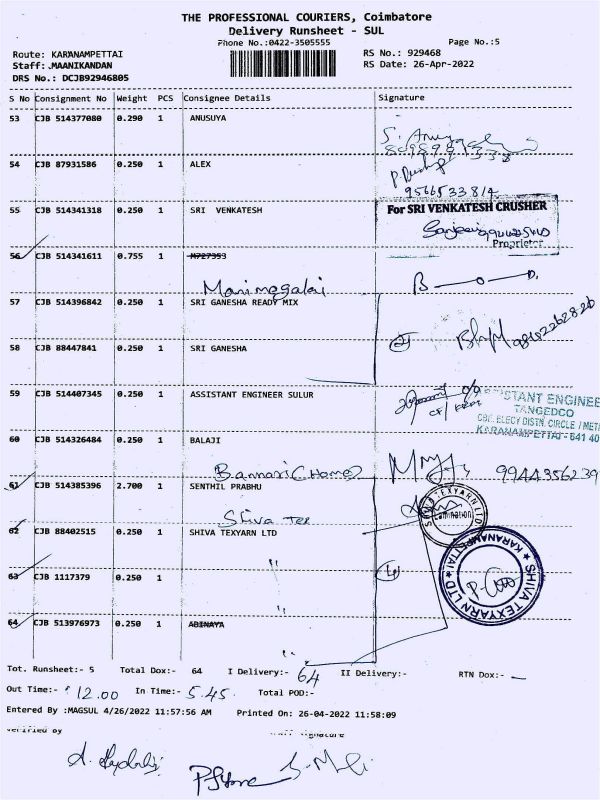 THE PROFESSIONAL COURIERS, Coimbatore
Delivery Runsheet - SUL
Phone No.:0422-3505555
Page No.:5
Route: KARANAMPETTAI
RS No.: 929468
Staff: MAANIKANDAN
RS Date: 26-Apr-2022
DRS No.: DCJB92946805
S No Consignment No Weight PCS Consignee Details Signature
53 CJB 514377080 0.290 1 ANUSUYA
54 CJB 87931586 0.250 1 ALEX
9566533814
55 CJB 514341318 0.250 1 SRI VENKATESH
For SRI VENKATESH CRUSHER
Proprietor
56 CJB 514341611 0.755 1 M727353
Manimegalai
57 CJB 514396842 0.250 1 SRI GANESHA READY MIX
58 CJB 88447841 0.250 1 SRI GANESHA
59 CJB 514407345 0.250 1 ASSISTANT ENGINEER SULUR
STANT ENGINEE
TANGEDCO
CBE. ELECY DISTN. CIRCLE / MET
KARANAMPETTAI - 641 40
60 CJB 514326484 0.250 1 BALAJI
Bannari (Home)
9944356239
61 CJB 514385396 2.700 1 SENTHIL PRABHU
Shiva Tex
62 CJB 88402515 0.250 1 SHIVA TEXYARN LTD
SHIVA TEXYARN LTD
Lamination
63 CJB 1117379 0.250 1
SHIVA TEXYARN LTD
KARANAMPETTAI
64 CJB 513976973 0.250 1 ABINAYA
Tot. Runsheet:- 5 Total Dox:- 64 I Delivery:- 64 II Delivery:- RTN Dox:- —
Out Time:- 12.00 In Time:- 5.45 Total POD:-
Entered By :MAGSUL 4/26/2022 11:57:56 AM Printed On: 26-04-2022 11:58:09
Verified by